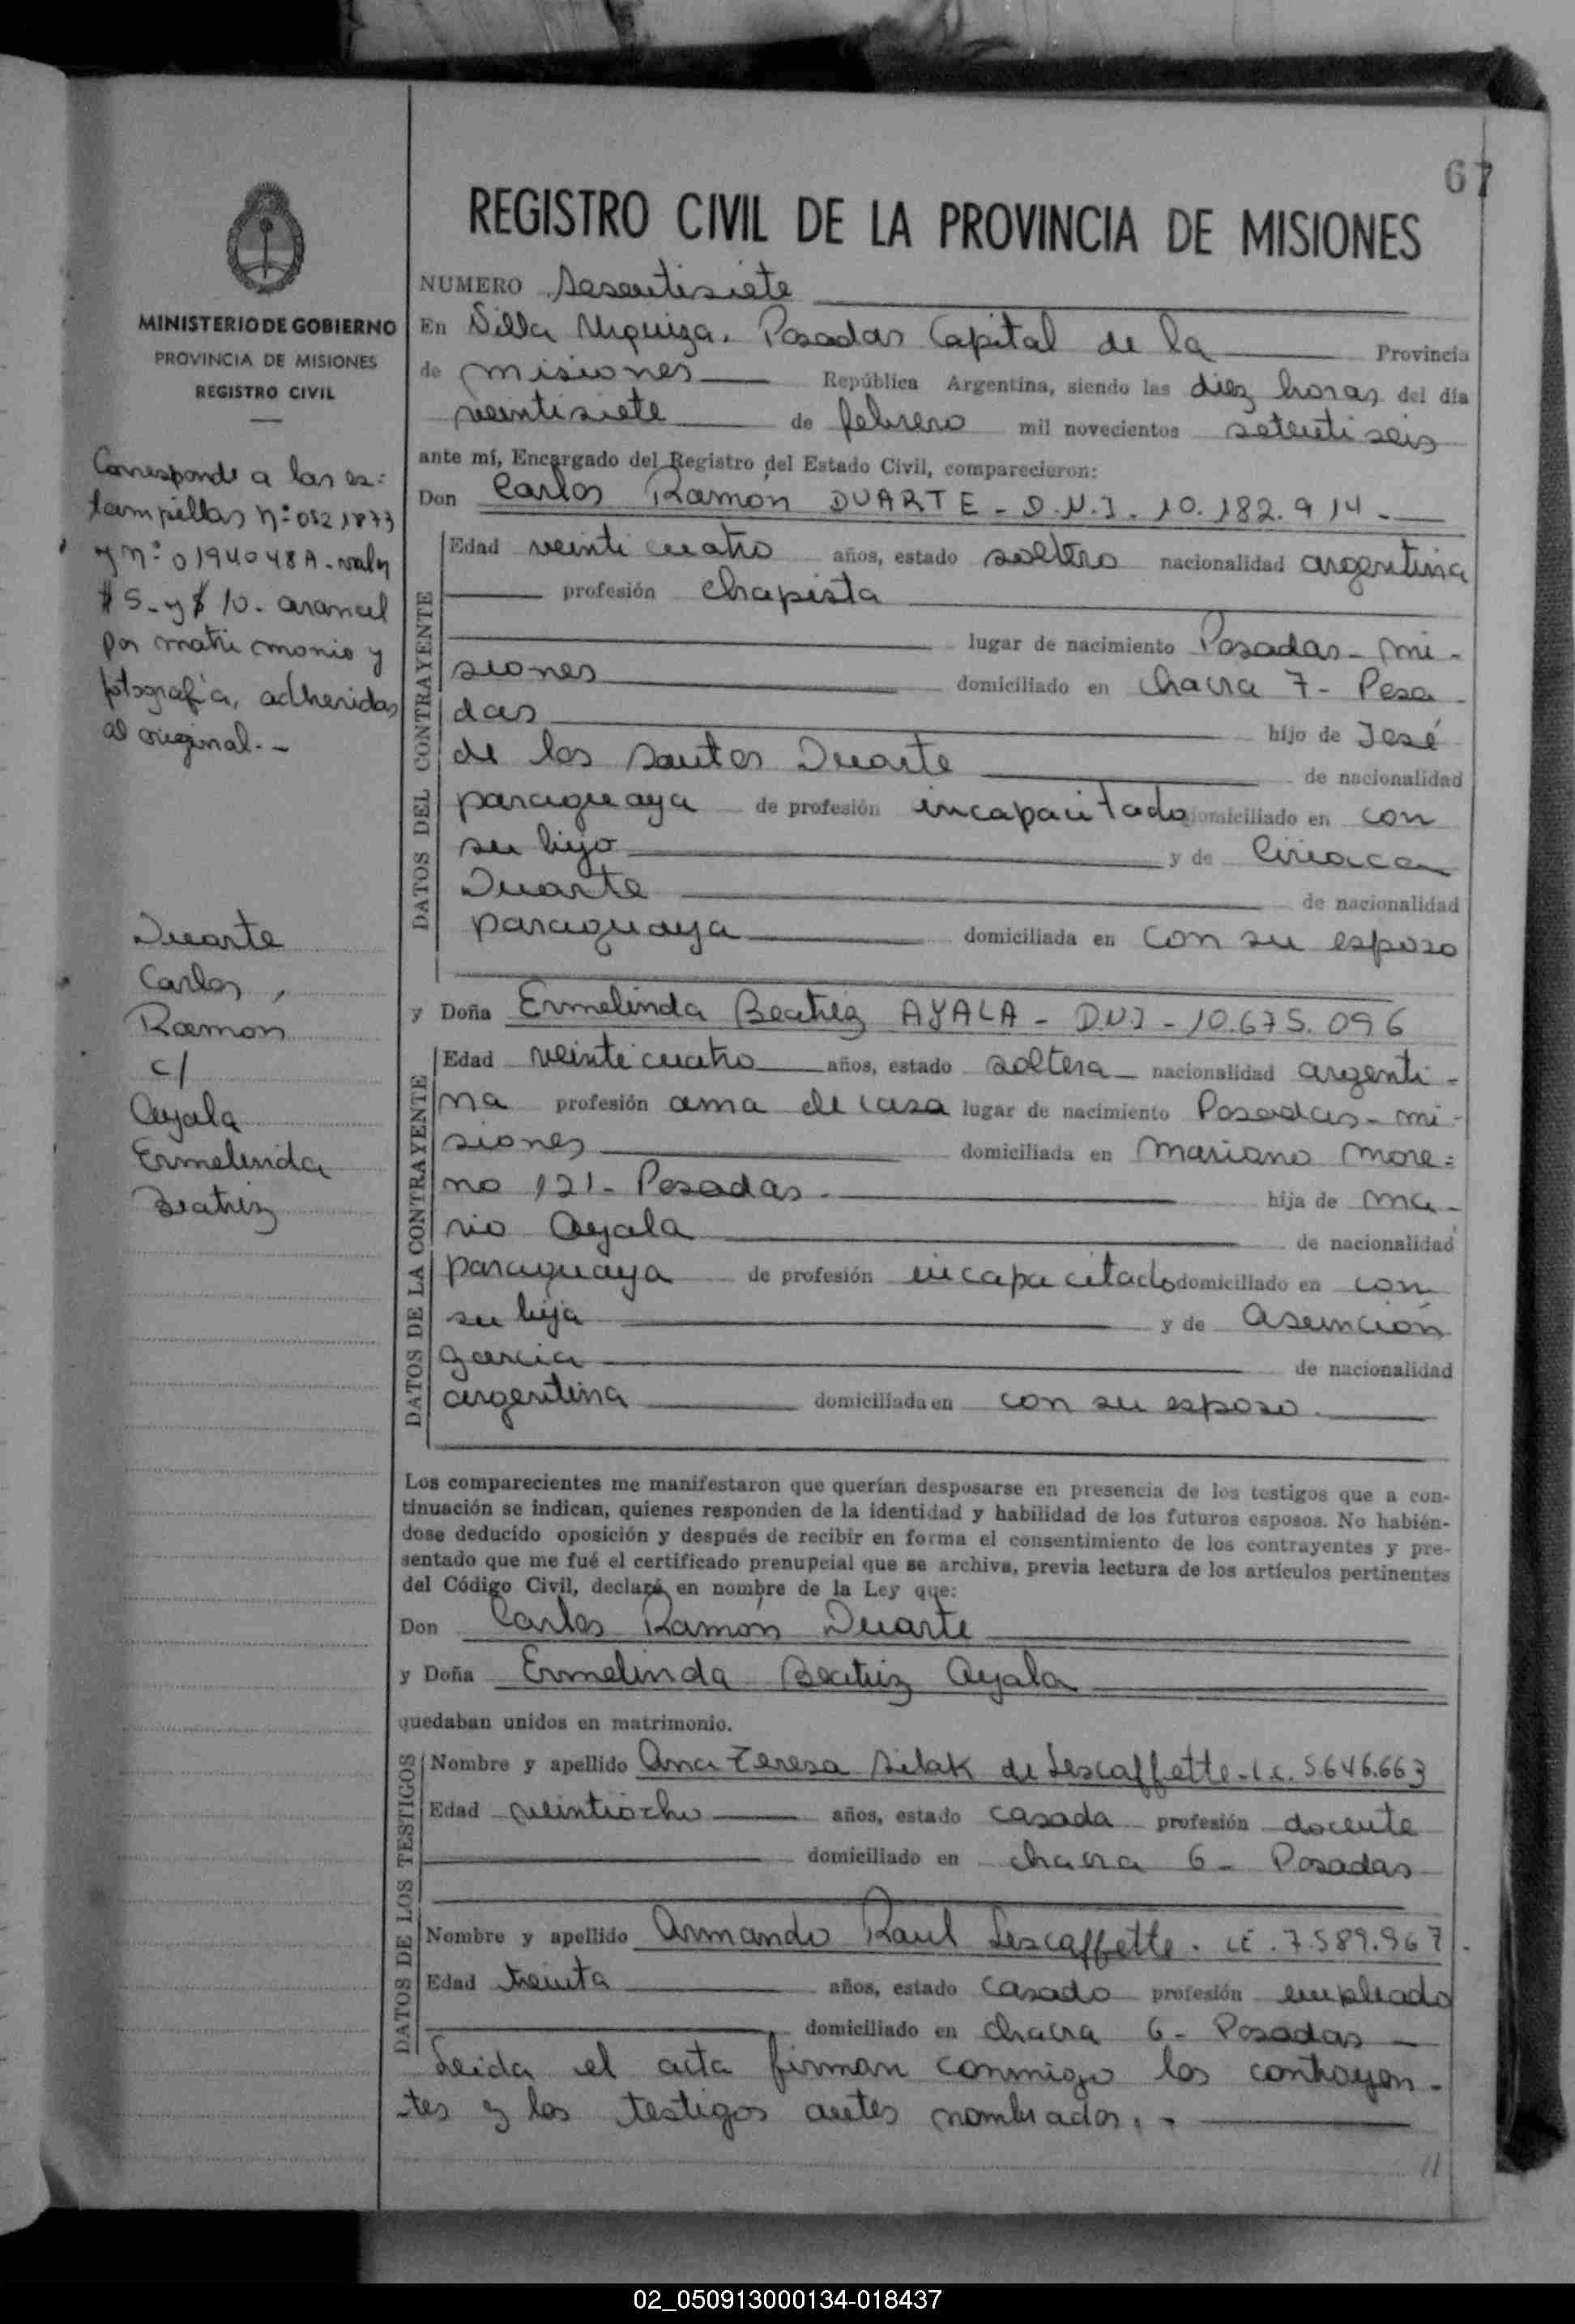 67
REGISTRO CIVIL DE LA PROVINCIA DE MISIONES
NUMERO Sesentisiete
MINISTERIO DE GOBIERNO
PROVINCIA DE MISIONES
REGISTRO CIVIL
Corresponde a las es=
tampillas nº 0521873
y nº 0194048A - valor
$ 5 - y $ 10 - arancel
por matrimonio y
fotografía, adheridas
al original. -
Duarte
Carlos,
Ramon
c/
Ayala
Ermelinda
Beatriz
En Villa Urquiza. Posadas Capital de la Provincia
de misiones República Argentina, siendo las diez horas del día
veintisiete de febrero mil novecientos setenti seis
ante mí, Encargado del Registro del Estado Civil, comparecieron:
Don Carlos Ramón DUARTE - D.N.I. 10.182.914 -
DATOS DEL CONTRAYENTE
Edad veinticuatro años, estado soltero nacionalidad argentina
profesión chapista
lugar de nacimiento Posadas - mi -
siones domiciliado en chacra 7 - Posa -
das hijo de José
de los Santos Duarte de nacionalidad
paraguaya de profesión incapacitado domiciliado en con
su hijo y de Ciriaca
Duarte de nacionalidad
paraguaya domiciliada en con su esposo
y Doña Ermelinda Beatriz AYALA - D.N.I - 10.675.096
DATOS DE LA CONTRAYENTE
Edad veinticuatro años, estado soltera - nacionalidad argenti -
na profesión ama de casa lugar de nacimiento Posadas - mi -
siones domiciliada en Mariano More =
no 121 - Posadas. hija de Ma -
rio Ayala de nacionalidad
paraguaya de profesión incapacitado domiciliado en con
su hija y de Asunción
Garcia de nacionalidad
argentina domiciliada en con su esposo.
Los comparecientes me manifestaron que querían desposarse en presencia de los testigos que a con-
tinuación se indican, quienes responden de la identidad y habilidad de los futuros esposos. No habién-
dose deducido oposición y después de recibir en forma el consentimiento de los contrayentes y pre-
sentado que me fué el certificado prenupcial que se archiva, previa lectura de los artículos pertinentes
del Código Civil, declaré en nombre de la Ley que:
Don Carlos Ramón Duarte
y Doña Ermelinda Beatriz Ayala
quedaban unidos en matrimonio.
DATOS DE LOS TESTIGOS
Nombre y apellido Ana Teresa Silak de Lescaffette - L.C. 5.646.663
Edad veintiocho años, estado casada profesión docente
domiciliado en chacra 6 - Posadas
Nombre y apellido Armando Raul Lescaffette. LE. 7.589.967.
Edad treinta años, estado casado profesión empleado
domiciliado en chacra 6 - Posadas -
Leida el acta firman conmigo los contrayen -
tes y los testigos antes nombrados. -
//
02_050913000134-018437